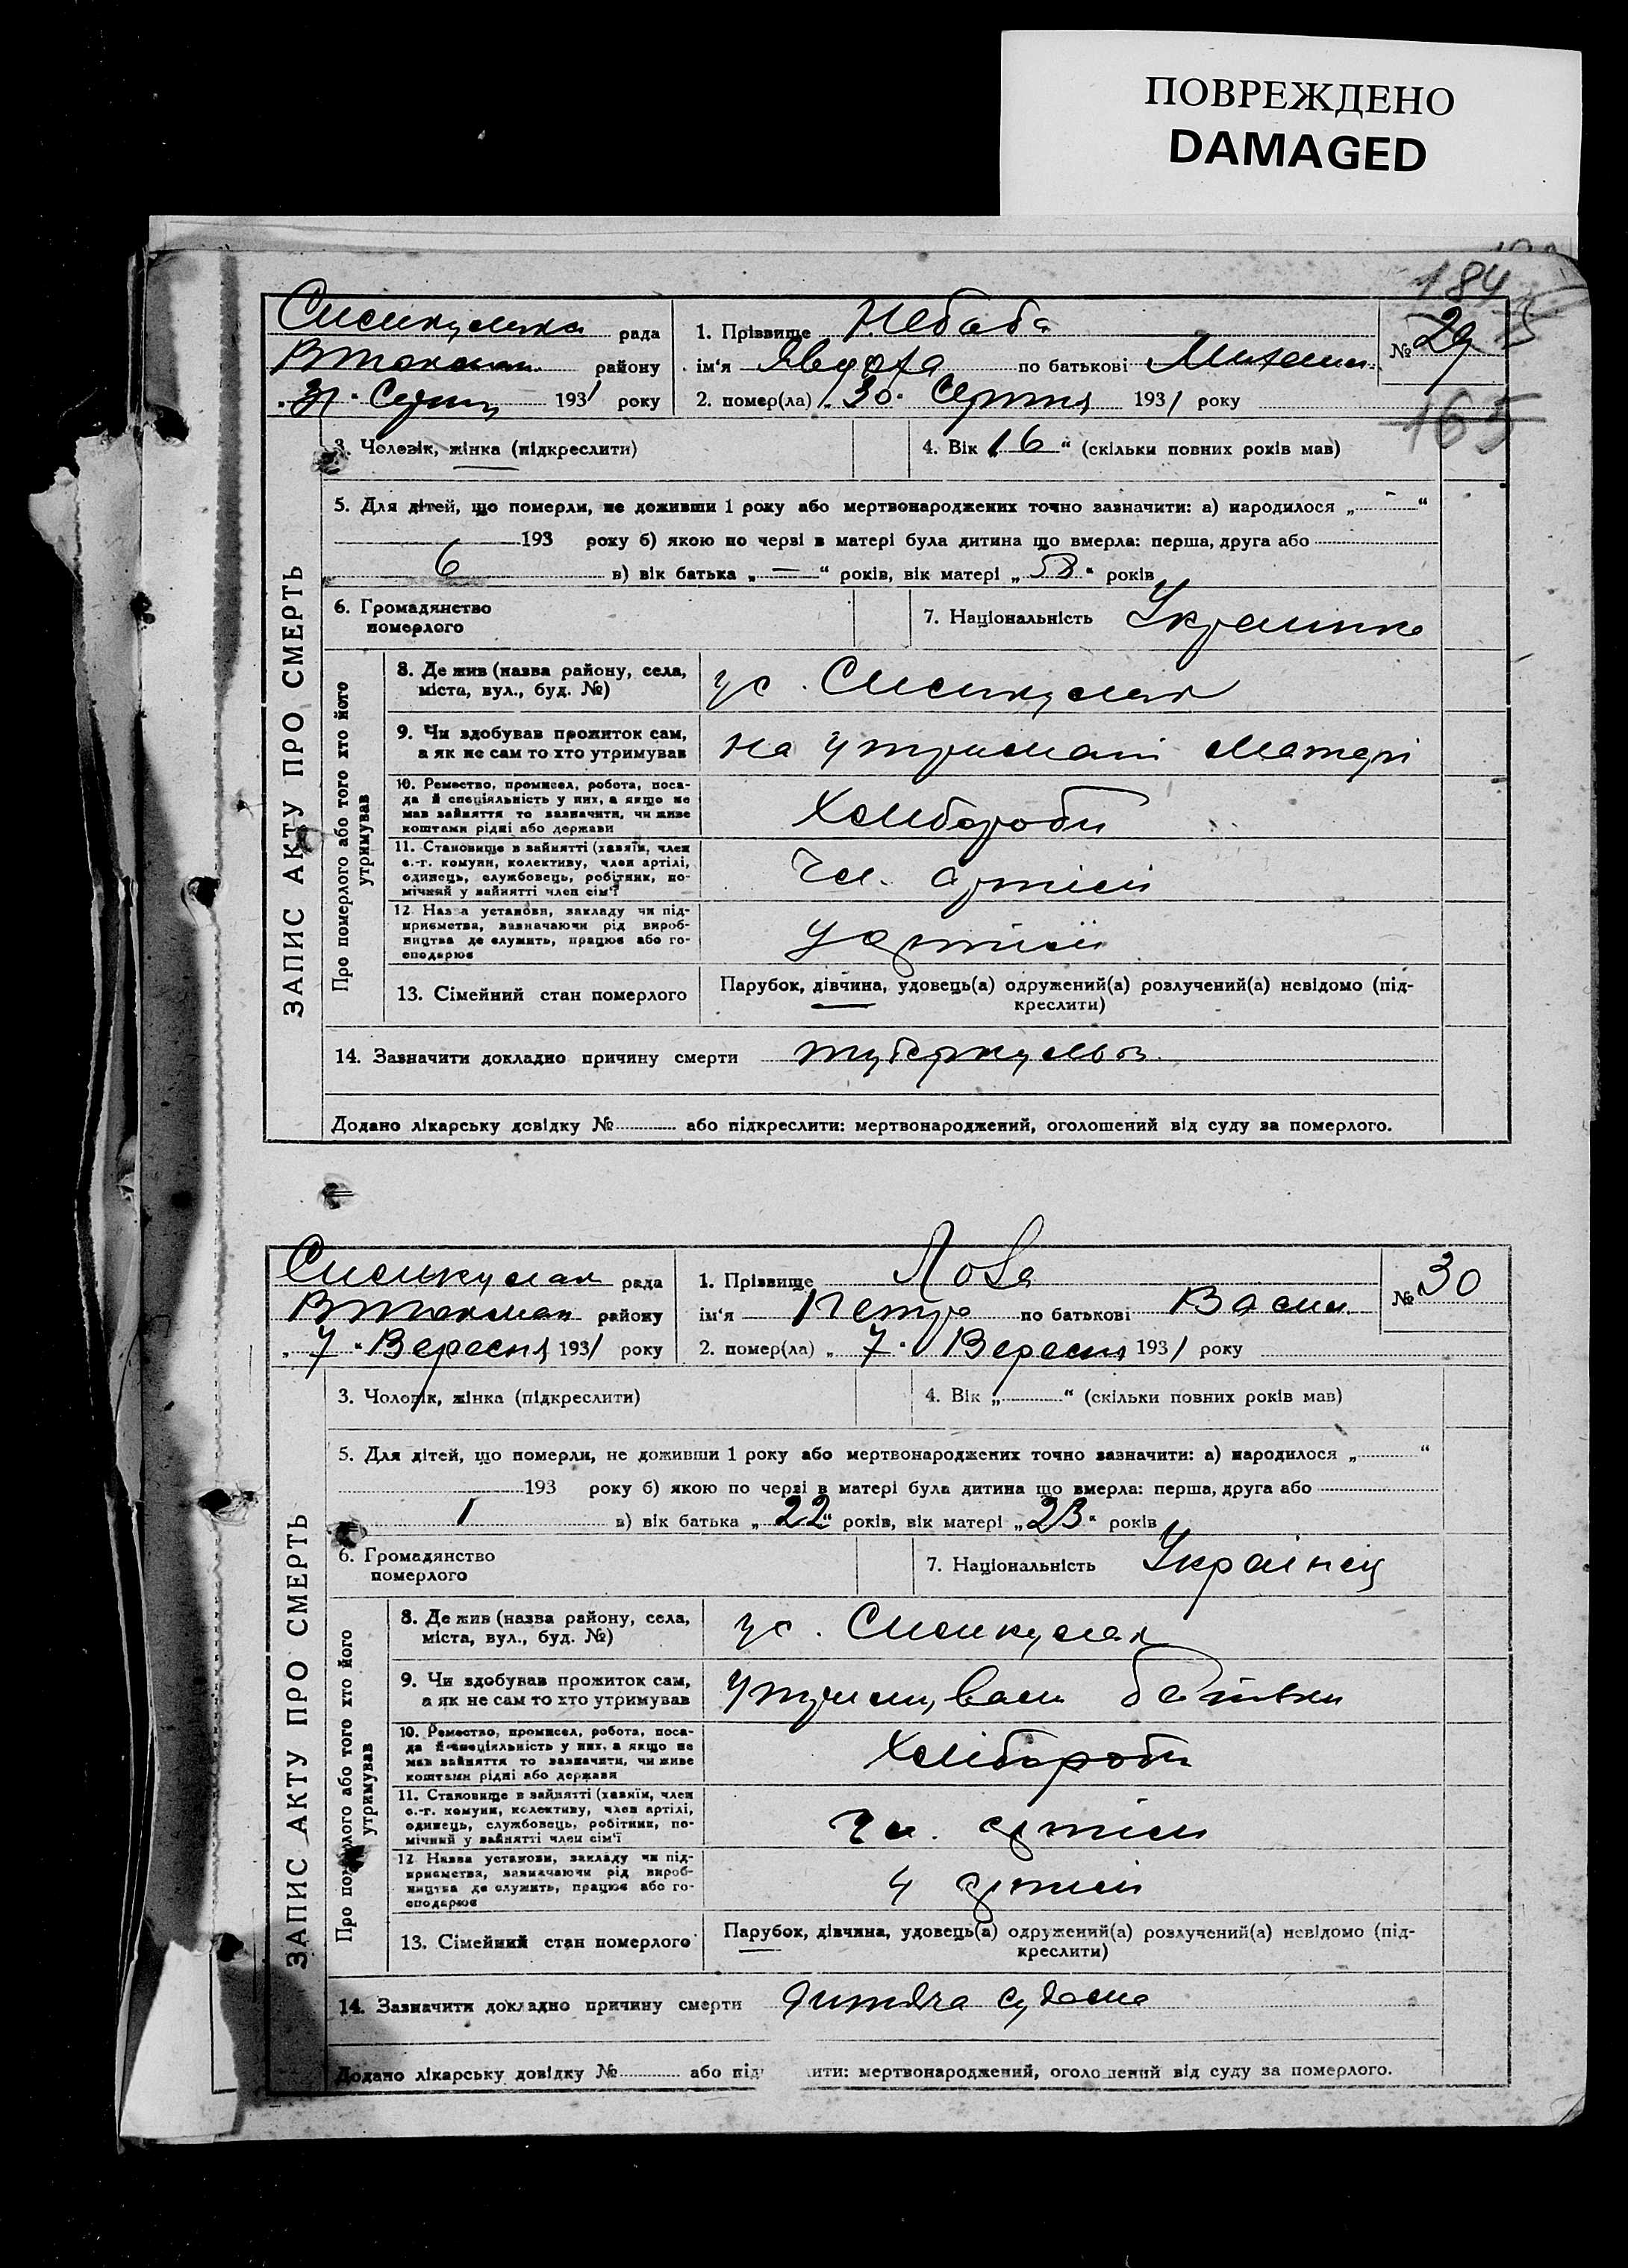 ПОВРЕЖДЕНО
DAMAGED
184
165
рада
1. Прізвище Небаба
№ 29
району
ім'я Явдоха по батькові Михайл.
„31" Серпня 1931 року
2. помер(ла) „30" Серпня 1931 року
3. Чоловік, жінка (підкреслити)
4. Вік „16" (скільки повних років мав)
5. Для дітей, що померли, не доживши 1 року або мертвонароджених точно зазначити: а) народилося „ - "
193 року б) якою по черзі в матері була дитина що вмерла: перша, друга або
6 в) вік батька „—" років, вік матері „58" років
6. Громадянство
померлого
7. Національність Українка
ЗАПИС АКТУ ПРО СМЕРТЬ
Про померлого або того хто його
утримував
8. Де жив (назва району, села,
міста, вул., буд. №)
у с.
9. Чи здобував прожиток сам,
а як не сам то хто утримував
на утриманні Матері
10. Ремество, промисел, робота, поса-
да й спеціяльність у них, а якщо не
мав зайняття то зазначити, чи живе
коштами рідні або держави
Хлібороби
11. Становище в зайнятті (хазяїн, член
с.-г. комуни, колективу, член артілі,
одинець, службовець, робітник, по-
мічний у зайнятті член сім'ї
Чл. артілі
12 Назва установи, закладу чи під-
приємства, зазначаючи рід вироб-
ництва де служить, працює або го-
сподарює
у артілі
13. Сімейний стан померлого
Парубок, дівчина, удовець(а) одружений(а) розлучений(а) невідомо (під-
креслити)
14. Зазначити докладно причину смерти туберкульоз
Додано лікарську довідку № або підкреслити: мертвонароджений, оголошений від суду за померлого.
рада
1. Прізвище Лоба
№ 30
району
ім'я Петро по батькові Васил.
„7" Вересня 1931 року
2. помер(ла) „7" Вересня 1931 року
3. Чоловік, жінка (підкреслити)
4. Вік „ " (скільки повних років мав)
5. Для дітей, що померли, не доживши 1 року або мертвонароджених точно зазначити: а) народилося „ "
193 року б) якою по черзі в матері була дитина що вмерла: перша, друга або
1 в) вік батька „22" років, вік матері „23" років
6. Громадянство
померлого
7. Національність Українец
ЗАПИС АКТУ ПРО СМЕРТЬ
Про померлого або того хто його
утримував
8. Де жив (назва району, села,
міста, вул., буд. №)
у с.
9. Чи здобував прожиток сам,
а як не сам то хто утримував
утримували батьки
10. Ремество, промисел, робота, поса-
да й спеціяльність у них, а якщо не
мав зайняття то зазначити, чи живе
коштами рідні або держави
Хлібороби
11. Становище в зайнятті (хазяїн, член
с.-г. комуни, колективу, член артілі,
одинець, службовець, робітник, по-
мічний у зайнятті член сім'ї
Чл. артілі
12 Назва установи, закладу чи під-
приємства, зазначаючи рід вироб-
ництва де служить, працює або го-
сподарює
у артілі
13. Сімейний стан померлого
Парубок, дівчина, удовець(а) одружений(а) розлучений(а) невідомо (під-
креслити)
14. Зазначити докладно причину смерти
Додано лікарську довідку № або під ити: мертвонароджений, оголо ений від суду за померлого.